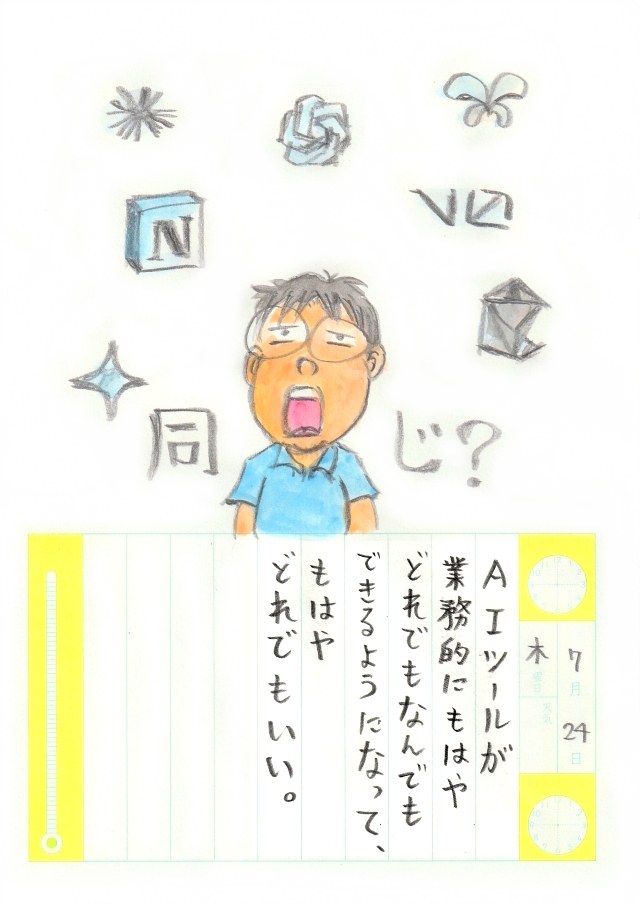 N
V0
同じ？
7月
24日
木曜日
天気
AIツールが
業務的にもはや
どれでもなんでも
できるようになって、
もはや
どれでもいい。